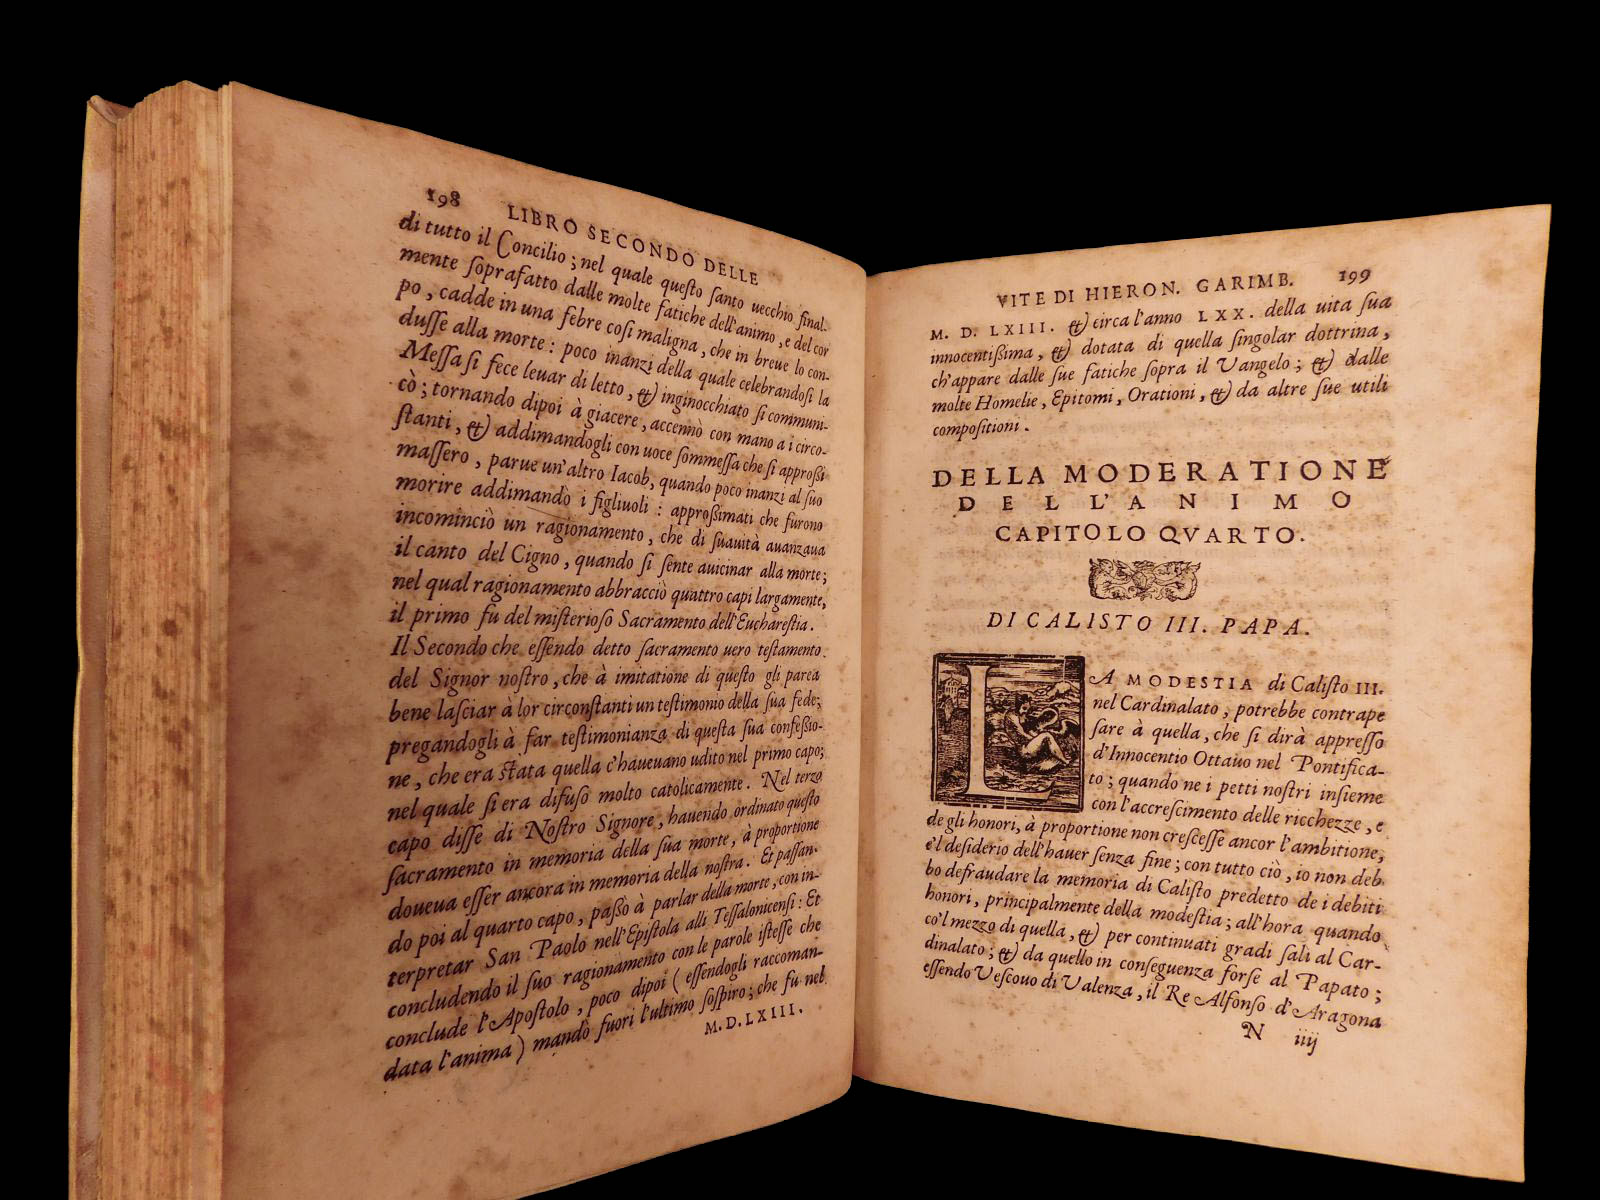 198 LIBRO SECONDO DELLE
di tutto il Concilio; nel quale queſto ſanto uecchio final-
mente ſoprafatto dalle molte fatiche dell'animo, e del cor
po, cadde in una febre coſi maligna, che in breue lo con-
duſſe alla morte: poco inanzi della quale celebrandoſi la
Meſſa ſi fece leuar di letto, & inginocchiato ſi communi-
cò; tornando dipoi à giacere, accennò con mano a i circo-
ſtanti, & addimandogli con uoce ſommeſſa che ſi approſſi
maſſero, parue un'altro Iacob, quando poco inanzi al ſuo
morire addimandò i figliuoli: approßimati che furono
incominciò un ragionamento, che di ſuauità auanzaua
il canto del Cigno, quando ſi ſente auicinar alla morte;
nel qual ragionamento abbracciò quattro capi largamente,
il primo fu del miſterioſo Sacramento dell'Euchareſtia.
Il Secondo che eſſendo detto ſacramento uero teſtamento
del Signor noſtro, che à imitatione di queſto gli parea
bene laſciar à lor circonſtanti un teſtimonio della ſua fede;
pregandogli à far teſtimonianza di queſta ſua confeßio-
ne, che era ſtata quella c'haueuano udito nel primo capo;
nel quale ſi era difuſo molto catolicamente. Nel terzo
capo diſſe di Noſtro Signore, hauendo ordinato queſto
ſacramento in memoria della ſua morte, à proportione
doueua eſſer ancora in memoria della noſtra. Et paſſan-
do poi al quarto capo, paßò à parlar della morte, con in-
terpretar San Paolo nell'Epiſtola alli Teſſalonicenſi: Et
concludendo il ſuo ragionamento con le parole iſteſſe che
conclude l'Apoſtolo, poco dipoi (eſſendogli raccoman-
data l'anima) mandò fuori l'ultimo ſoſpiro; che fu nel
M.D.LXIII.
VITE DI HIERON. GARIMB. 199
M. D. LXIII. & circa l'anno LXX. della uita ſua
innocentißima, & dotata di quella ſingolar dottrina,
ch'appare dalle ſue fatiche ſopra il Vangelo; & dalle
molte Homelie, Epitomi, Orationi, & da altre ſue utili
compoſitioni.
DELLA MODERATIONE
DELL'ANIMO
CAPITOLO QVARTO.
DI CALISTO III. PAPA.
LA MODESTIA di Caliſto III.
nel Cardinalato, potrebbe contrape
ſare à quella, che ſi dirà appreſſo
d'Innocentio Ottauo nel Pontifica-
to; quando ne i petti noſtri inſieme
con l'accreſcimento delle ricchezze, e
de gli honori, à proportione non creſceſſe ancor l'ambitione,
e'l deſiderio dell'hauer ſenza fine; con tutto ciò, io non deb
bo defraudare la memoria di Caliſto predetto de i debiti
honori, principalmente della modeſtia; all'hora quando
co'l mezzo di quella, & per continuati gradi ſali al Car-
dinalato; & da quello in conſeguenza forſe al Papato;
eſſendo Veſcouo di Valenza, il Re Alfonſo d'Aragona
N iiij